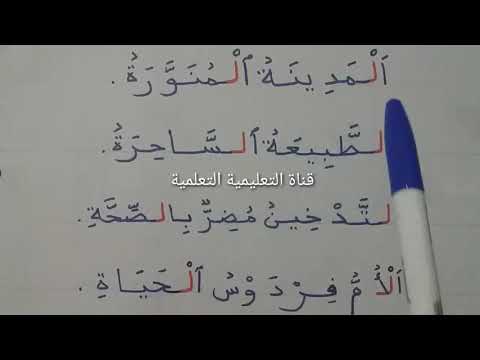 اَلْمَدِينَةُ ٱلْمُنَوَّرَةُ .
الطَّبِيعَةُ ٱلسَّاحِرَةُ .
قناة التعليمية التعلمية
التَّدْخِينُ مُضِرٌّ بِالصِّحَّةِ .
اَلْأُمُّ فِرْدَوْسُ ٱلْحَيَاةِ .